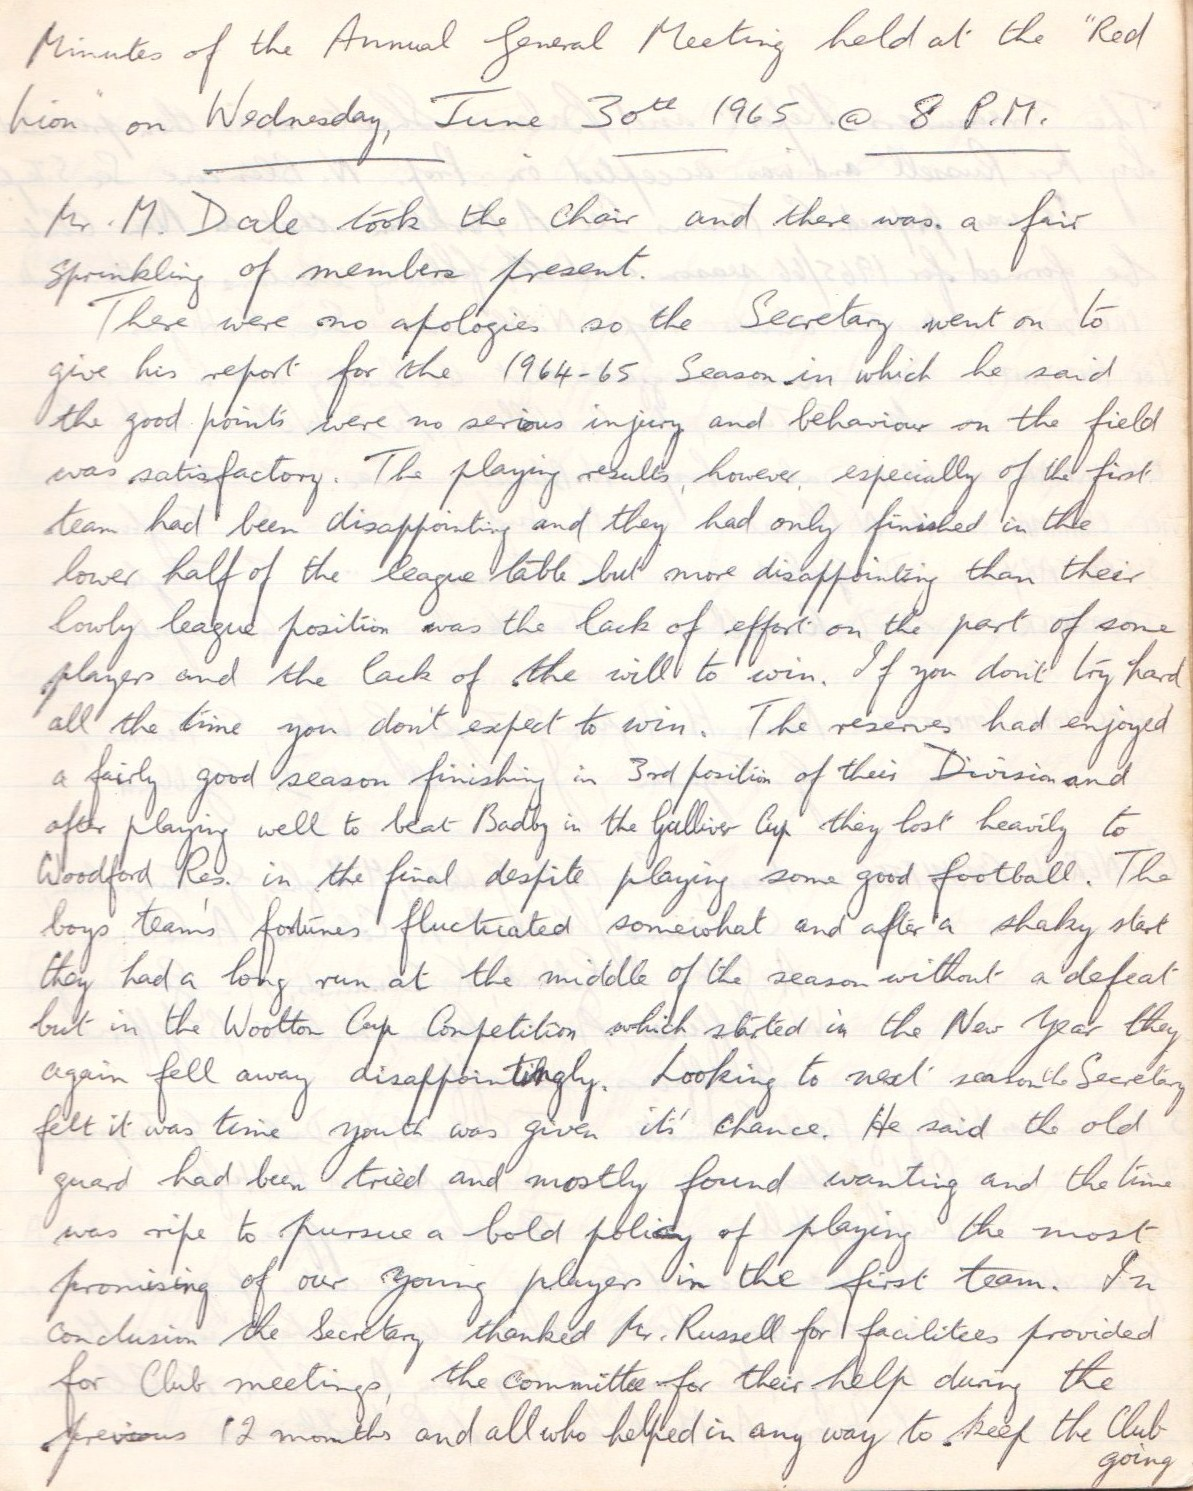 Minutes of the Annual General Meeting held at the "Red
Lion" on Wednesday, June 30th 1965 @ 8 P.M.
Mr. M. Dale took the Chair and there was a fair
sprinkling of members present.
There were no apologies so the Secretary went on to
give his report for the 1964-65 Season in which he said
the good points were no serious injury and behaviour on the field
was satisfactory. The playing results, however, especially of the first
team had been disappointing and they had only finished in the
lower half of the league table but more disappointing than their
lowly league position was the lack of effort on the part of some
players and the lack of the will to win. If you don't try hard
all the time you don't expect to win. The reserves had enjoyed
a fairly good season finishing in 3rd position of their Division and
after playing well to beat Badby in the Gulliver Cup they lost heavily to
Woodford Res. in the final despite playing some good football. The
boys team's fortunes fluctuated somewhat and after a shaky start
they had a long run at the middle of the season without a defeat
but in the Wootton Cup Competition which started in the New Year they
again fell away disappointingly. Looking to next season the Secretary
felt it was time youth was given it's chance. He said the old
guard had been tried and mostly found wanting and the time
was ripe to pursue a bold policy of playing the most
promising of our young players in the first team. In
conclusion the Secretary thanked Mr. Russell for facilities provided
for Club meetings, the committee for their help during the
previous 12 months and all who helped in any way to keep the Club
going